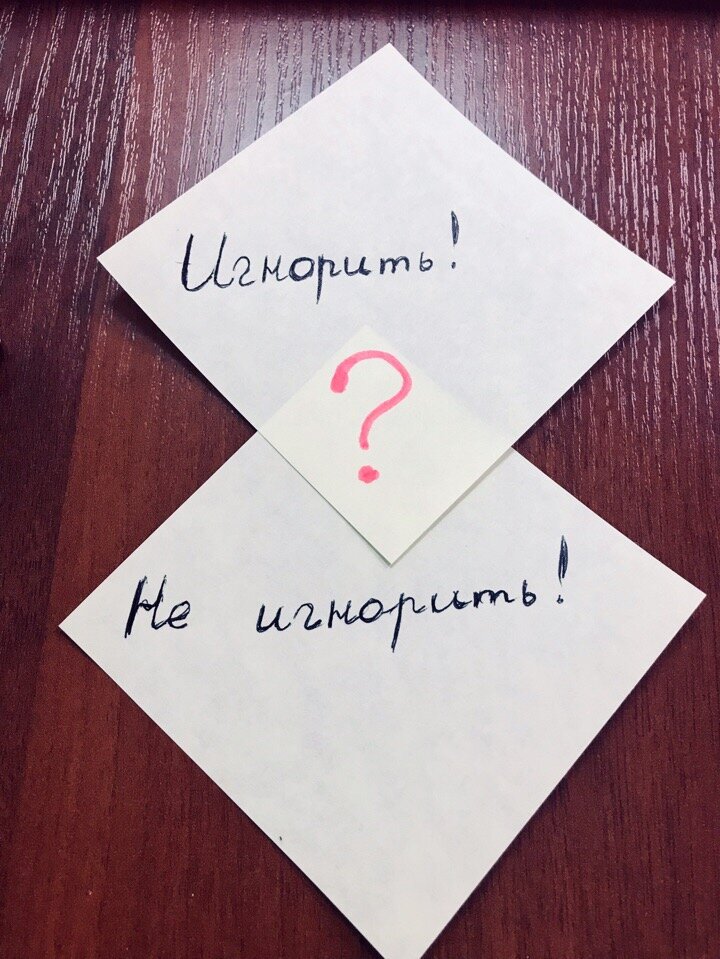 Игнорить!
?
Не игнорить!